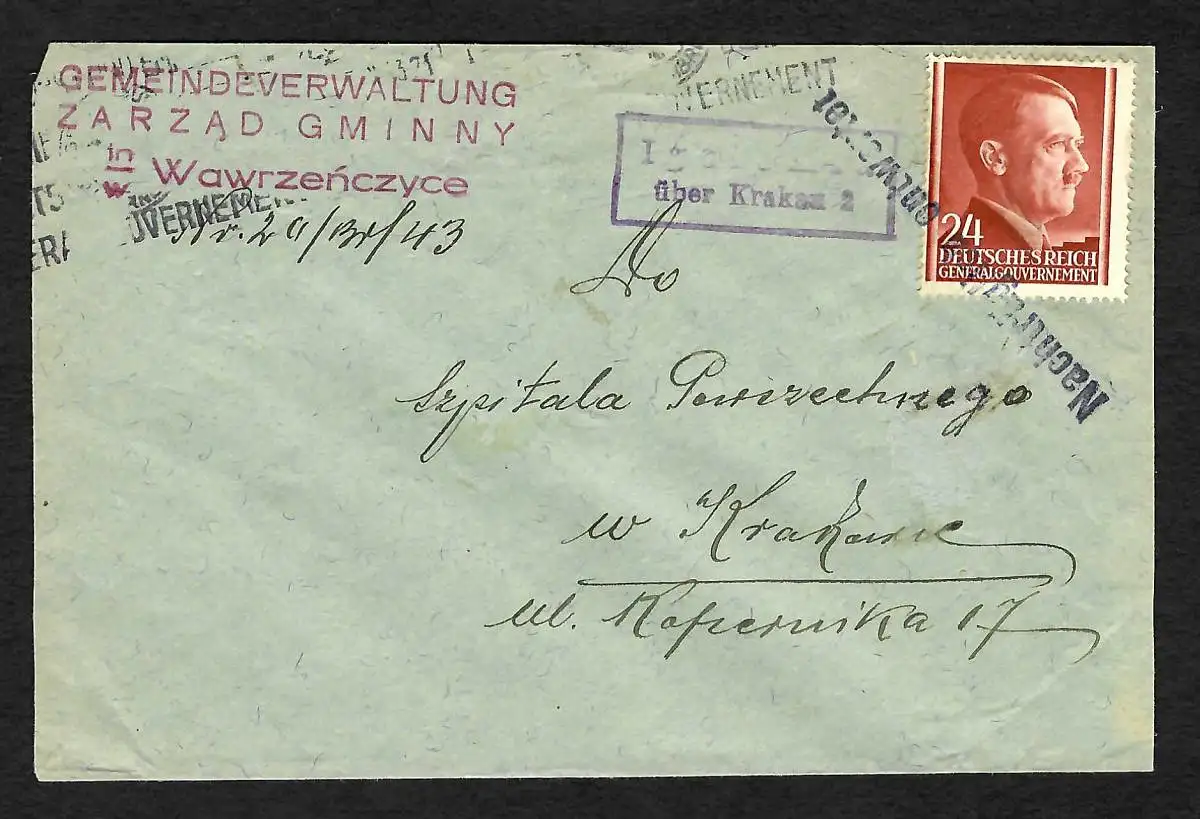 GEMEINDEVERWALTUNG
ZARZĄD GMINNY
in
w Wawrzeńczyce
GOUVERNEMENT
VERNEMENT
über Krakau 2
Nachträglich entwertet
24
DEUTSCHES REICH
GENERALGOUVERNEMENT
Do
Szpitala Powszechnego
w Krakowie
ul. Kopernika 17